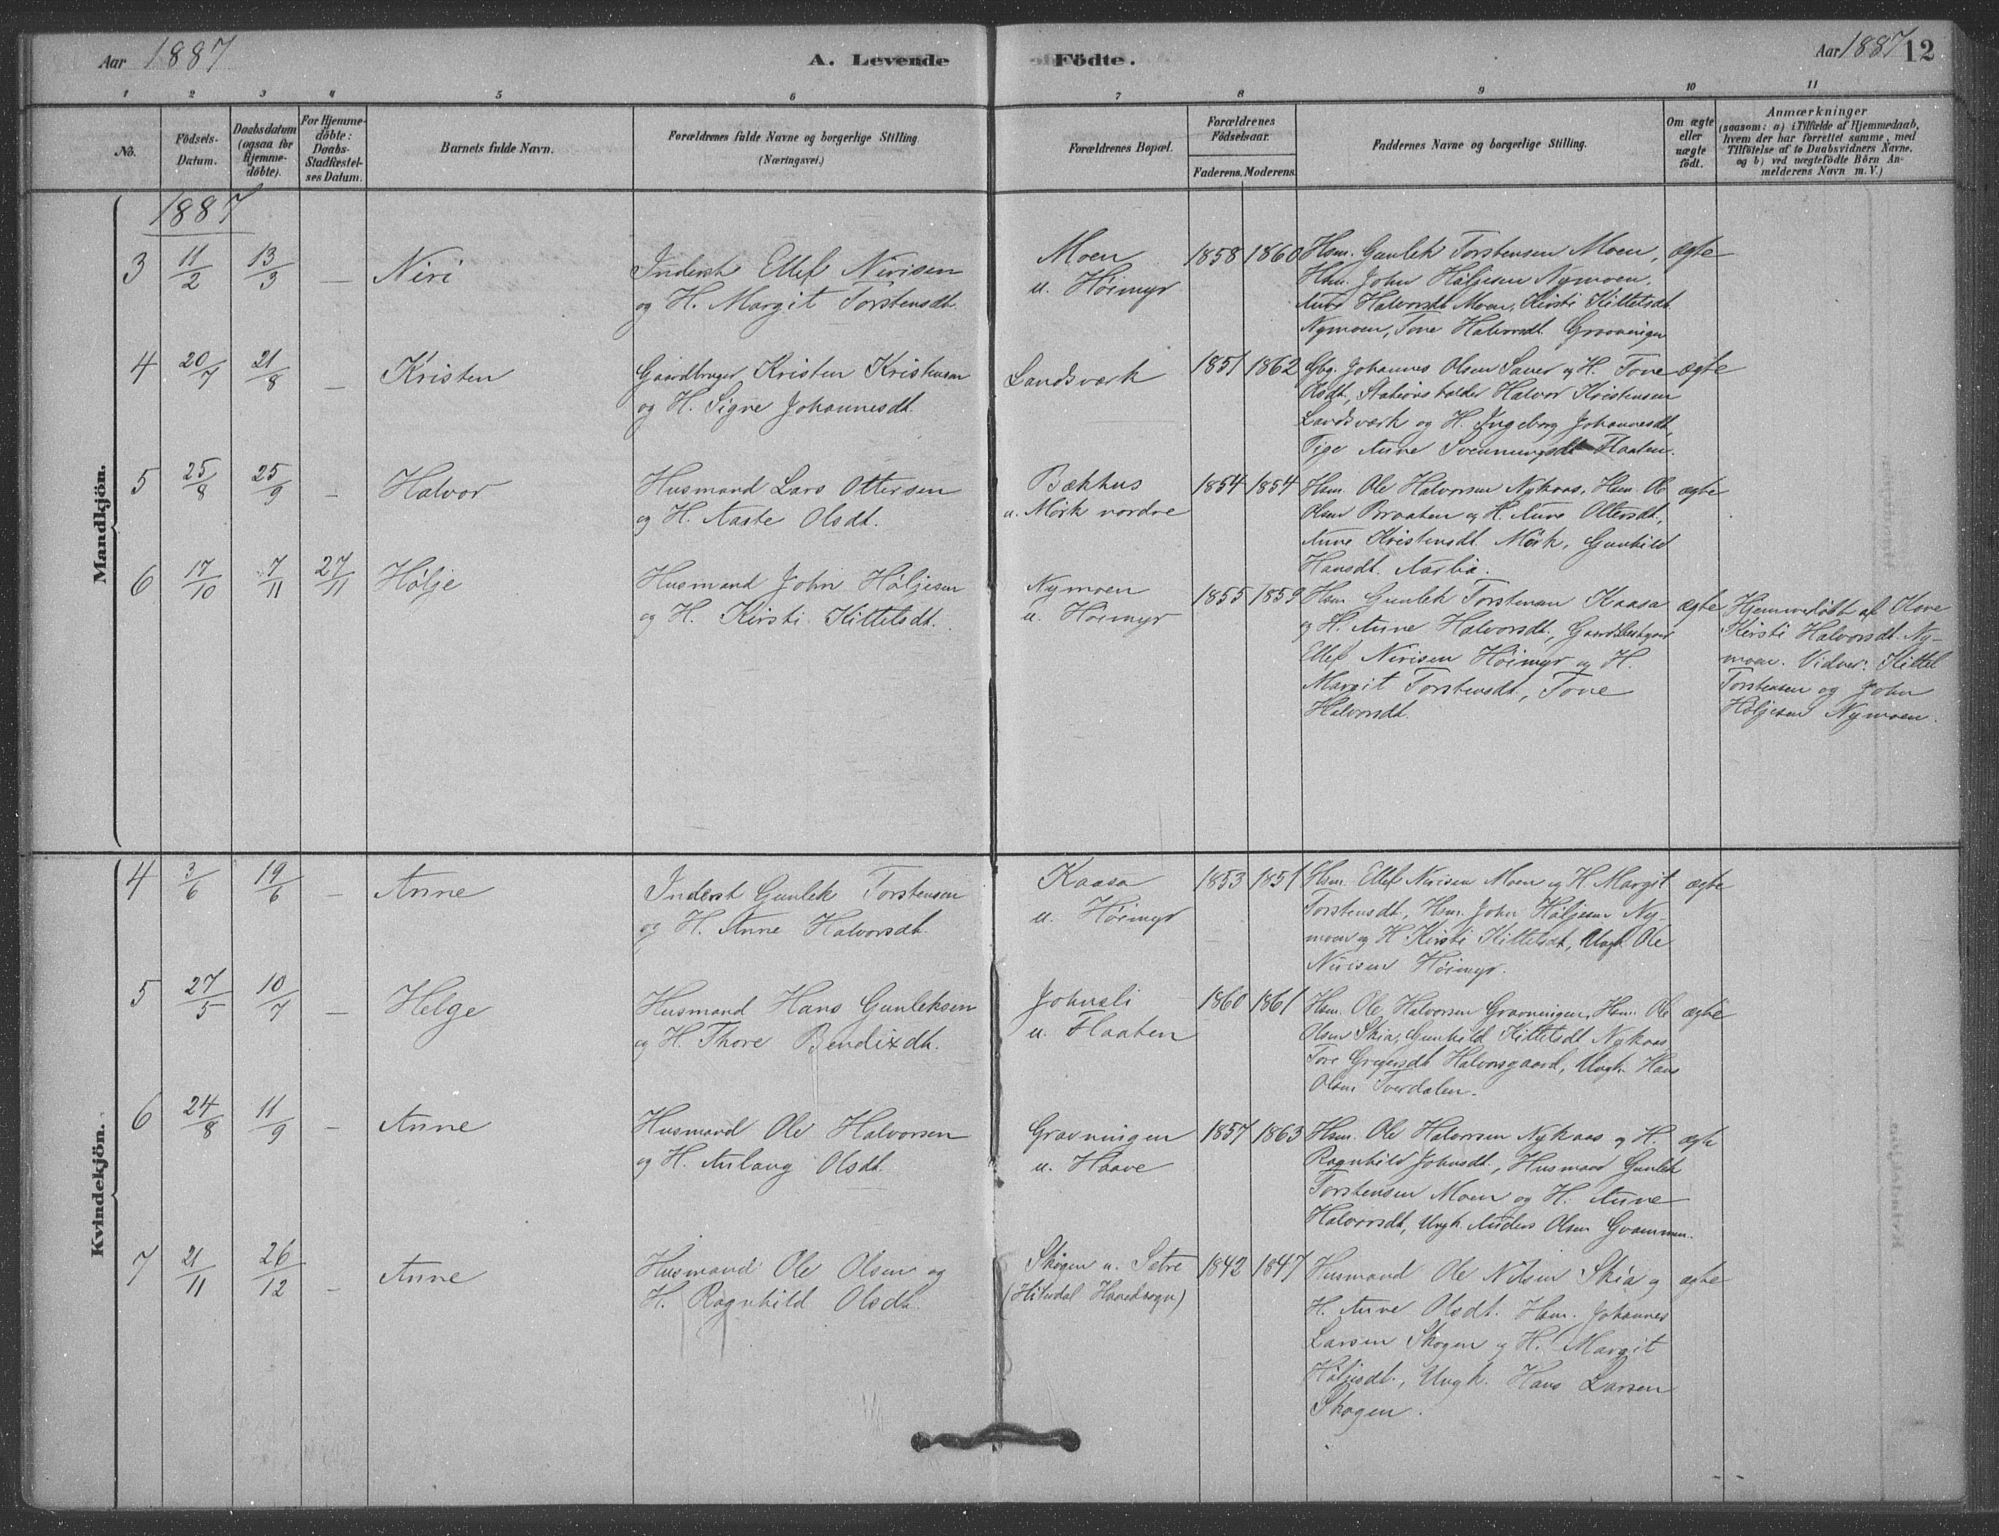 Aar 1887
A. Levende Födte.
Aar 1887 12
1 2 3 4 5 6 7 8 9 10 11
No.
Födsels-
Datum.
Daabsdatum
(ogsaa for
Hjemme-
döbte).
For Hjemme-
döbte:
Daabs-
Stadfæstel-
ses Datum.
Barnets fulde Navn.
Forældrenes fulde Navne og borgerlige Stilling.
(Næringsvei.)
Forældrenes Bopæl.
Forældrenes
Födselsaar.
Faderens. Moderens.
Faddernes Navne og borgerlige Stilling.
Om ægte
eller
uægte
födt.
Anmærkninger
(saasom: a) i Tilfælde af Hjemmedaab,
hvem der har forrettet samme, med
Tilföielse af to Daabsvidners Navne,
og b) ved uægtefödte Börn An-
melderens Navn m. V.)
Mandkjön.
1887
3 11/2 13/3 – Niri
Inderst Ellef Nirisen
og H. Margit Torstensdt.
Moen
u. Höimyr
1858 1860
Hsm. Gunlek Torstensen Moen,
Hsm. John Höljesen Nymoen,
Anne Halvorsdt. Moen, Kirsti Kittelsdt.
Nymoen, Tone Halvorsdt. Gravningen
ægte
4 20/7 21/8 – Kristen
Gaardbruger Kristen Kristensen
og H. Signe Johannesdt.
Landsværk
1851 1862
Gbg. Johannes Olsen Sauer og H. Tone
Olsdt., Stationsholder Halvor Kristensen
Landsværk og H. Ingeborg Johannesdt.,
Pige Anne Svennungsdt. Flaaten.
ægte
5 25/8 25/9 – Halvor
Husmand Lars Ottersen
og H. Aaste Olsdt.
Bækhus
u. Mörk nordre
1854 1854
Hsm. Ole Halvorsen Nykaas, Hsm. Ole
Olsen Braaten og H. Anne Ottersdt.,
Anne Kristensdt. Mörk, Gunhild
Hansdt. Aarlia.
ægte
6 17/10 7/11 27/11 Hölje
Husmand John Höljesen
og H. Kirsti Kittelsdt.
Nymoen
u. Höimyr
1855 1859
Hsm. Gunlek Torstensen Kaasa
og H. Anne Halvorsdt.,
Ellef Nirisen Höimyr og H.
Margit Torstensdt., Tone
Halvorsdt.
ægte
Hjemmedöbt af Kone
Kirsti Halvorsdt. Ny-
moen. Vidner: Kittel
Torstensen og John
Höljesen Nymoen.
Kvindekjön.
4 3/6 19/6 – Anne
Inderst Gunlek Torstensen
og H. Anne Halvorsdt.
Kaasa
u. Höimyr
1853 1851
Hsm. Ellef Nirisen Moen og H. Margit
Torstensdt., Hsm. John Höljesen Ny-
moen og H. Kirsti Kittelsdt., Ungk. Ole
Nirisen Höimyr.
ægte
5 27/5 10/7 – Helge
Husmand Hans Gunleksen
og H. Thore Bendixdt.
Johnsli
u. Flaaten
1860 1861
Hsm. Ole Halvorsen Gravningen, Hsm. Ole
Olsen Skia, Gunhild Kittelsdt. Nykaas
Tore Gregersdt. Halvorsgaard, Ungk. Hans
Olsen Tverdalen.
ægte
6 24/8 11/9 – Anne
Husmand Ole Halvorsen
og H. Aslaug Olsdt.
Gravningen
u. Haave
1857 1863
Hsm. Ole Halvorsen Nykaas og H.
Ragnhild Johnsdt., Husmand Gunlek
Torstensen Moen og H. Anne
Halvorsdt., Ungk. Anders Olsen Grammen.
ægte
7 21/11 26/12 – Anne
Husmand Ole Olsen og
H. Ragnhild Olsdt.
Skogen u. Sætre
(Hitterdal Hovedsogn)
1842 1847
Husmand Ole Nilsen Skia og
H. Anne Olsdt. Hsm. Johannes
Larsen Skogen og H. Margit
Höljesdt., Ungk. Hans Larsen
Skogen.
ægte